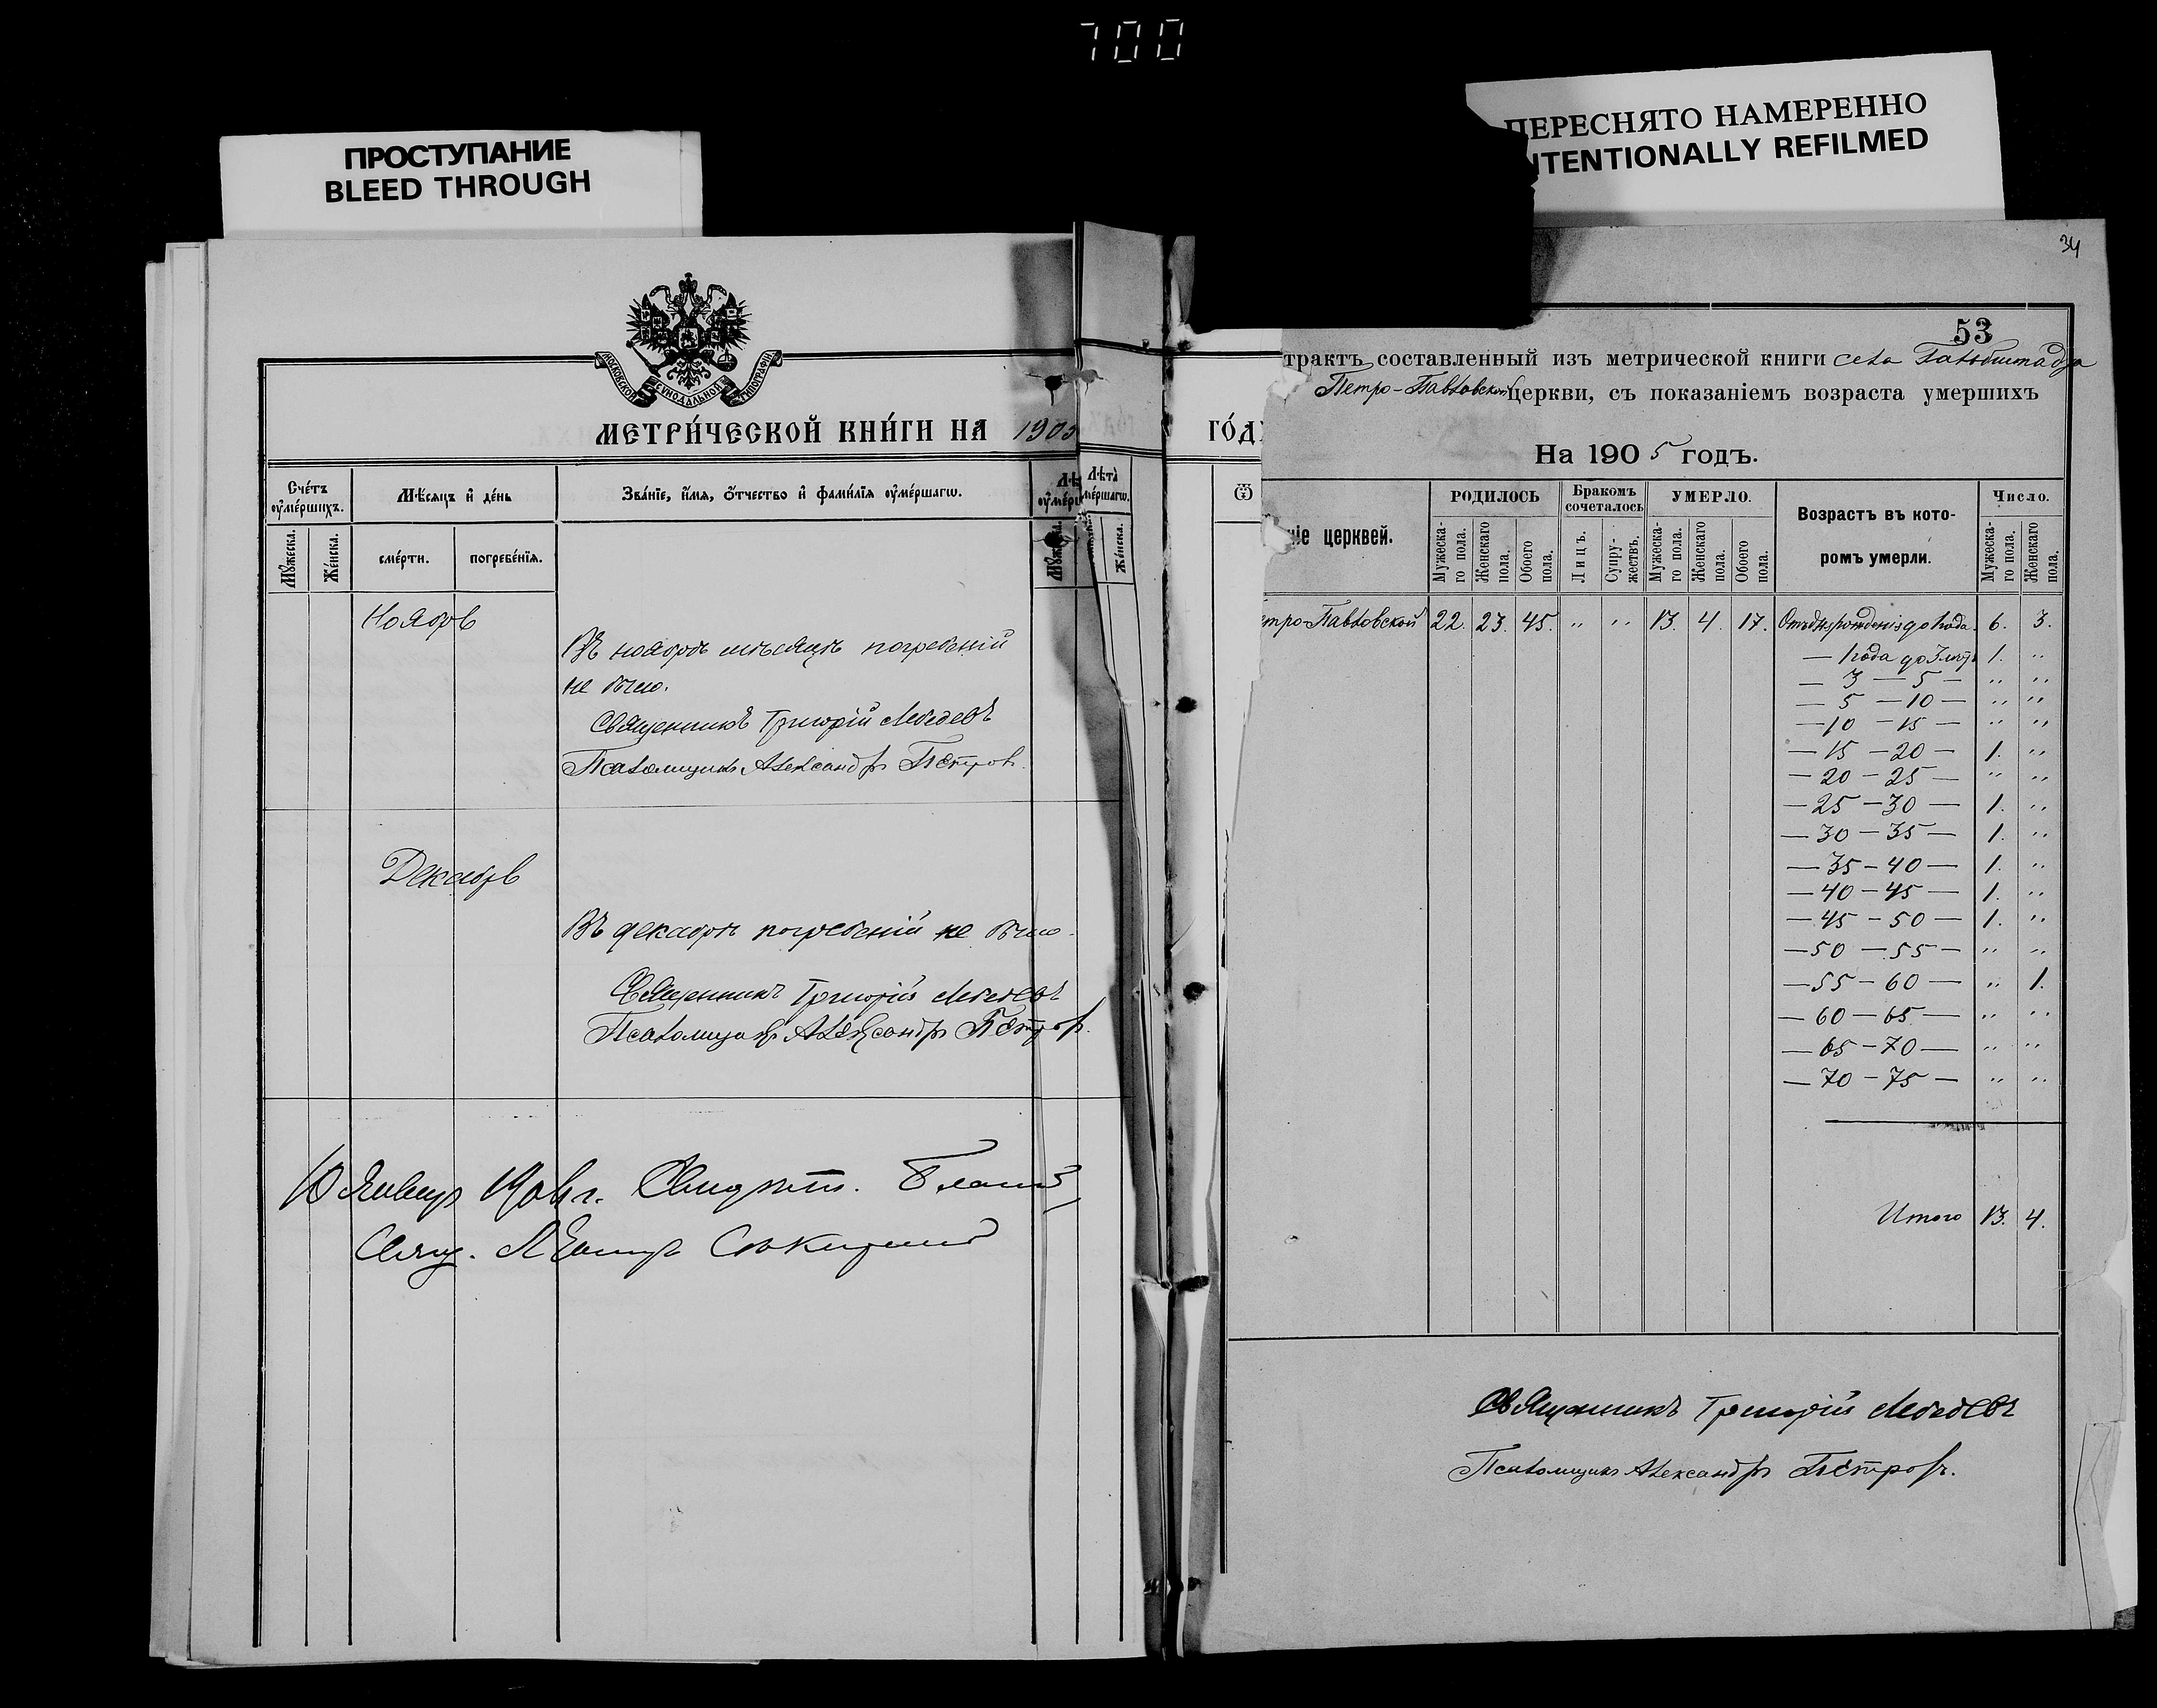 700
ПРОСТУПАНИЕ
BLEED THROUGH
ПЕРЕСНЯТО НАМЕРЕННО
NTENTIONALLY REFILMED
МОСКОВСКОЙ СѴНОДАЛЬНОЙ ТИПОГРАФІИ
МЕТРИ́ЧЕСКОЙ КНИ́ГИ НА 1905
Сче́тъ ᲂу҆ме́ршихъ.
Мѣ́сѧцъ и҆ де́нь
Зва́нїе, и҆́мѧ, ѻ҆́тчество и҆ фами́лїѧ ᲂу҆ме́ршагѡ.
Лѣ ᲂу҆ме́р
Лѣта̀ ме́ршагѡ.
Мꙋ́жеска.
Же́нска.
сме́рти.
погребе́нїѧ.
Мꙋ́жеска.
Же́нска.
Ноябрь
Въ ноябрѣ мѣсяцѣ погребеній
не было.
Священникъ Григорій Лебедевъ
Псаломщикъ Александръ Петровъ.
Декабрь
Въ декабрѣ погребеній не было.
Священникъ Григорій Лебедевъ
Псаломщикъ Александръ Петровъ.
10 Января 190 г.
Свящ.
34
53
ГО́Д
Ѿ
трактъ составленный изъ метрической книги села
Петро-Павловской церкви, съ показаніемъ возраста умершихъ
На 1905 годъ.
ніе церквей.
РОДИЛОСЬ
Бракомъ сочеталось
УМЕР�ло.
Возрастъ въ кото-
ромъ умерли.
Число.
Мужеска-го пола.
Женскаго пола.
Обоего пола.
Лицъ.
Супру-жествъ.
Мужеска-го пола.
Женскаго пола.
Обоего пола.
Мужеска-го пола.
Женскаго пола.
етро-Павловской 22. 23. 45. " " 13. 4. 17. Отъ дн. рожденія до 1 года. 6. 3.
— 1 года до 3 лѣтъ 1. "
— 3 — 5 — " "
— 5 — 10 — " "
— 10 — 15 — " "
— 15 — 20 — 1. "
— 20 — 25 — " "
— 25 — 30 — 1. "
— 30 — 35 — 1. "
— 35 — 40 — 1. "
— 40 — 45 — 1. "
— 45 — 50 — 1. "
— 50 — 55 — " "
— 55 — 60 — " 1.
— 60 — 65 — " "
— 65 — 70 — " "
— 70 — 75 — " "
Итого 13. 4.
Священникъ Григорій Лебедевъ
Псаломщикъ Александръ Петровъ.